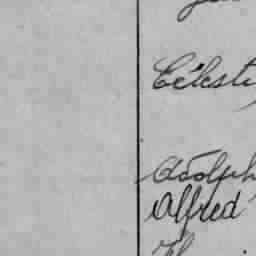 Célesti
Adolph
Alfred